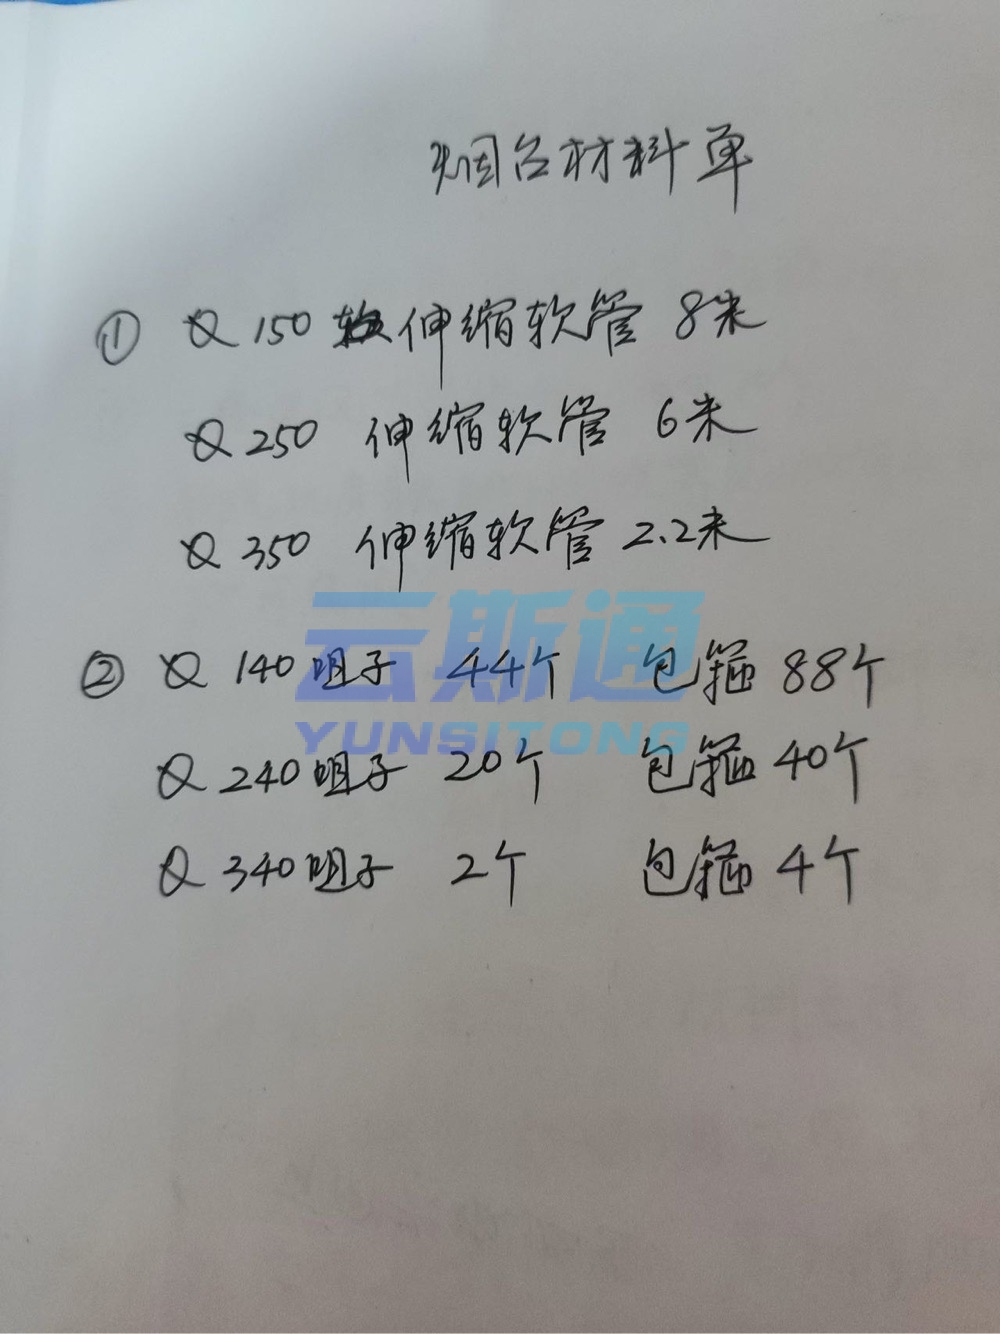 烟台材料单
① Q 150 伸缩软管 8米
Q 250 伸缩软管 6米
Q 350 伸缩软管 2.2米
云斯通
② Q 140 咀子 44个 包箍 88个
YUNSITONG
Q 240 咀子 20个 包箍 40个
Q 340 咀子 2个 包箍 4个